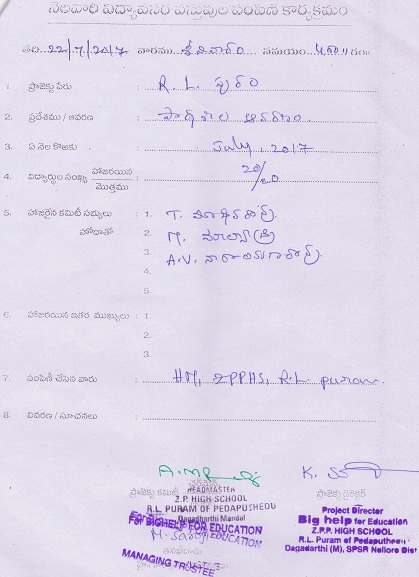 నెలవారి విద్యావసర వస్తువుల పంపిణి కార్యక్రమం
తేది. 22/7/2017 వారము శనివారం సమయం 4.00 గం
1. ప్రాజెక్టు పేరు : R. L. పురం
2. ప్రదేశము / ఆవరణ : పాఠశాల ఆవరణం
3. ఏ నెల కొఱకు : July, 2017
4. విద్యార్థుల సంఖ్య హాజరయిన : 20/20
మొత్తము
5. హాజరైన కమిటీ సభ్యులు : 1. T.
హోదాతో 2. M.
3. A.V.
4.
5.
6. హాజరయిన ఇతర ముఖ్యులు : 1.
2.
3.
7. పంపిణీ చేసిన వారు : HM, ZPPHS, R.L. puram.
8. వివరణ / సూచనలు :
ప్రాజెక్టు కమిటి ఛైర్మెన్ ప్రాజెక్టు డైరెక్టర్
HEADMASTER
Z.P. HIGH SCHOOL
R.L. PURAM OF PEDAPUTHEDU
Dagadarthi Mandal
For BIGHELP FOR EDUCATION
MANAGING TRUSTEE
Project Director
Big help for Education
Z.P.P. HIGH SCHOOL
R.L. Puram of Pedaputhedu
Dagadarthi (M), SPSR Nellore Dis